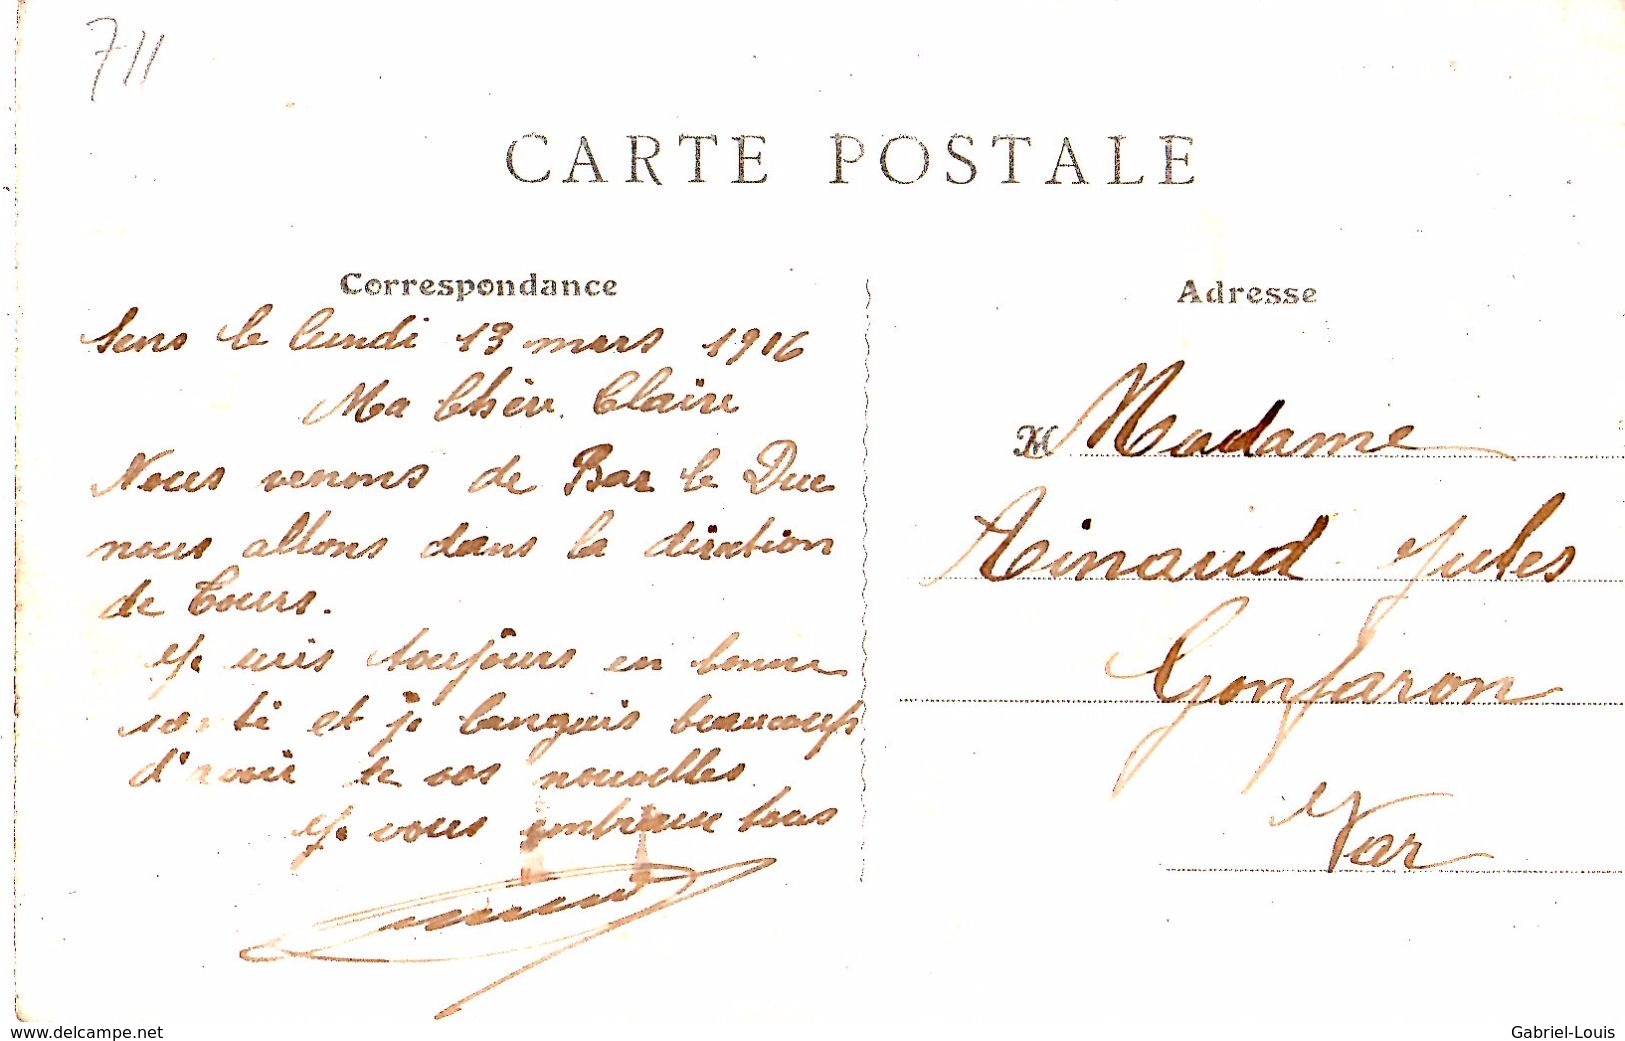 711
CARTE POSTALE
Correspondance
Sens le lundi 13 mars 1916
Ma Chère Claire
Nous venons de Bar le Duc
nous allons dans la direction
de Tours.
Je suis toujours en bonne
santé et je languis beaucoup
d'avoir de vos nouvelles
Je vous embrasse tous
Adresse
M Madame
Rinaud Jules
Gonfaron
Var
www.delcampe.net
Gabriel-Louis